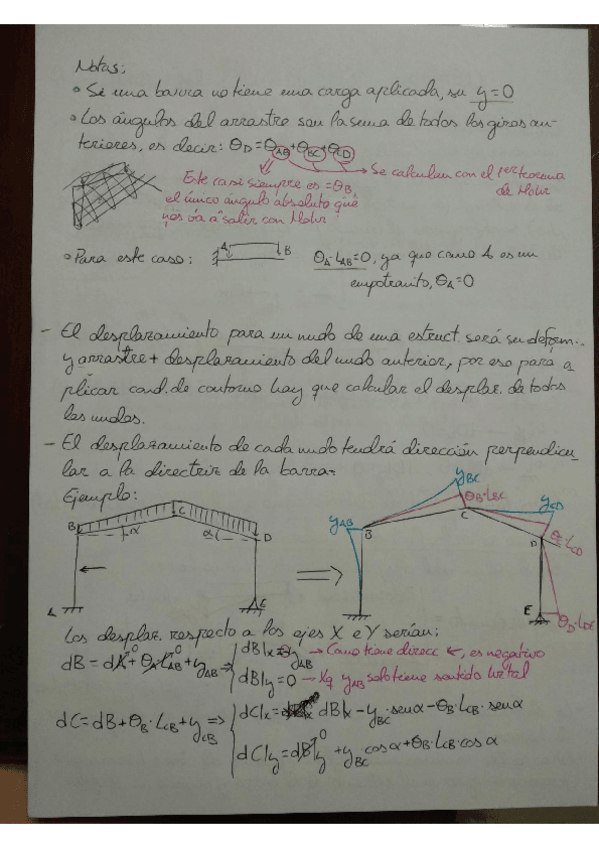 Notas:
• Si una barra no tiene una carga aplicada, su y=0
• Los ángulos del arrastre son la suma de todos los giros an-
teriores, es decir: θD=θAB+θBC+θCD
→ Se calculan con el 1er teorema
de Mohr
Este casi siempre es =θB,
el único ángulo absoluto que
nos va a salir con Mohr
• Para este caso: A B θA·LAB=0, ya que como A es un
empotramto, θA=0
- El desplazamiento para un nudo de una estruct. será su deform.
y arrastre + desplazamiento del nudo anterior, por eso para a
plicar cond. de contorno hay que calcular el desplaz. de todos
los nudos.
- El desplazamiento de cada nudo tendrá dirección perpendicu-
lar a la directriz de la barra.
Ejemplo:
B C α α D A E
⇒
yAB B yBC θB·LBC C yCD θC·LCD D E θD·LDE
Los desplaz. respecto a los ejes X e Y serían:
dB = dA + θA·LAB + yAB ⇒ dB|x = -yAB → Como tiene direcc ←, es negativo
dB|y = 0 → Xq yAB solo tiene sentido hztal
dC = dB + θB·LCB + yCB ⇒ dC|x = dB|x - yBC·senα - θB·LCB·senα
dC|y = dB|y + yBC cosα + θB·LCB·cosα